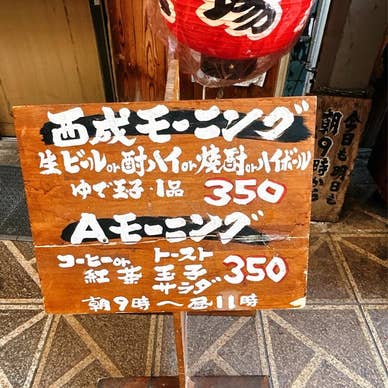 場
西成モーニング
生ビールor酎ハイor焼酎orハイボール
ゆで玉子・1品 350
Aモーニング
コーヒーor紅茶 トースト 玉子 サラダ 350
朝9時〜昼11時
今日も明日も
朝9時から